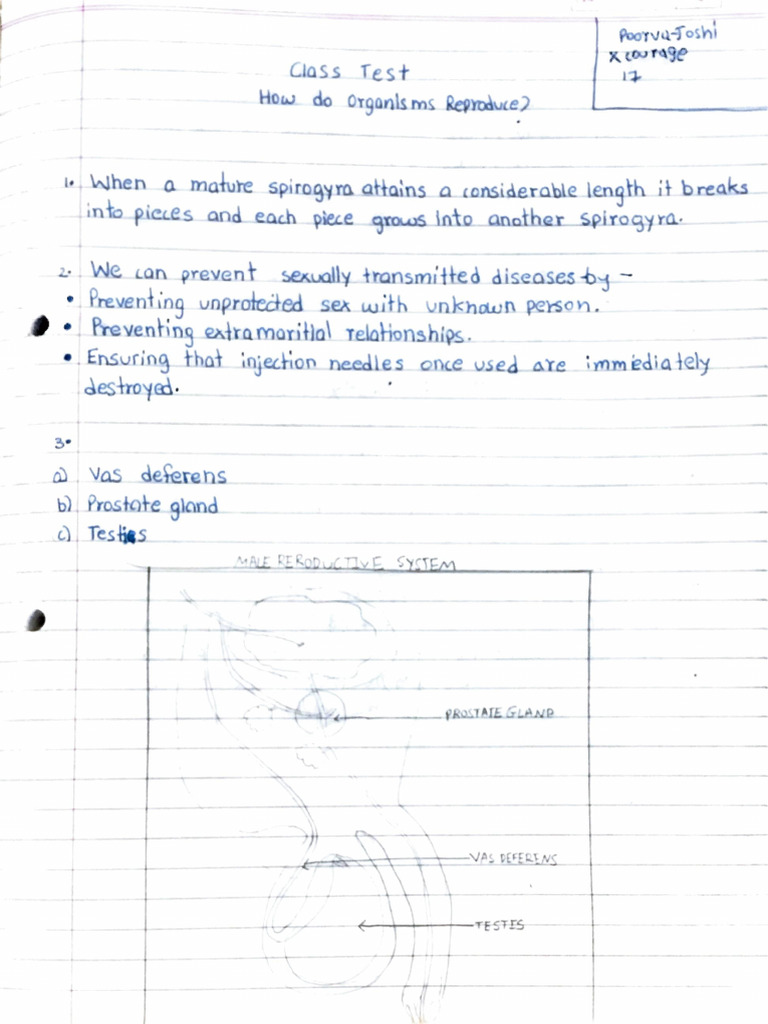 Poorva Joshi
X courage
17
Class Test
How do Organisms Reproduce?
1. When a mature spirogyra attains a considerable length it breaks
into pieces and each piece grows into another spirogyra.
2. We can prevent sexually transmitted diseases by -
• Preventing unprotected sex with unknown person.
• Preventing extramaritial relationships.
• Ensuring that injection needles once used are immediately
destroyed.
3.
a) Vas deferens
b) Prostate gland
c) Testies
MALE RERODUCTIVE SYSTEM
PROSTATE GLAND
VAS DEFERENS
TESTIS